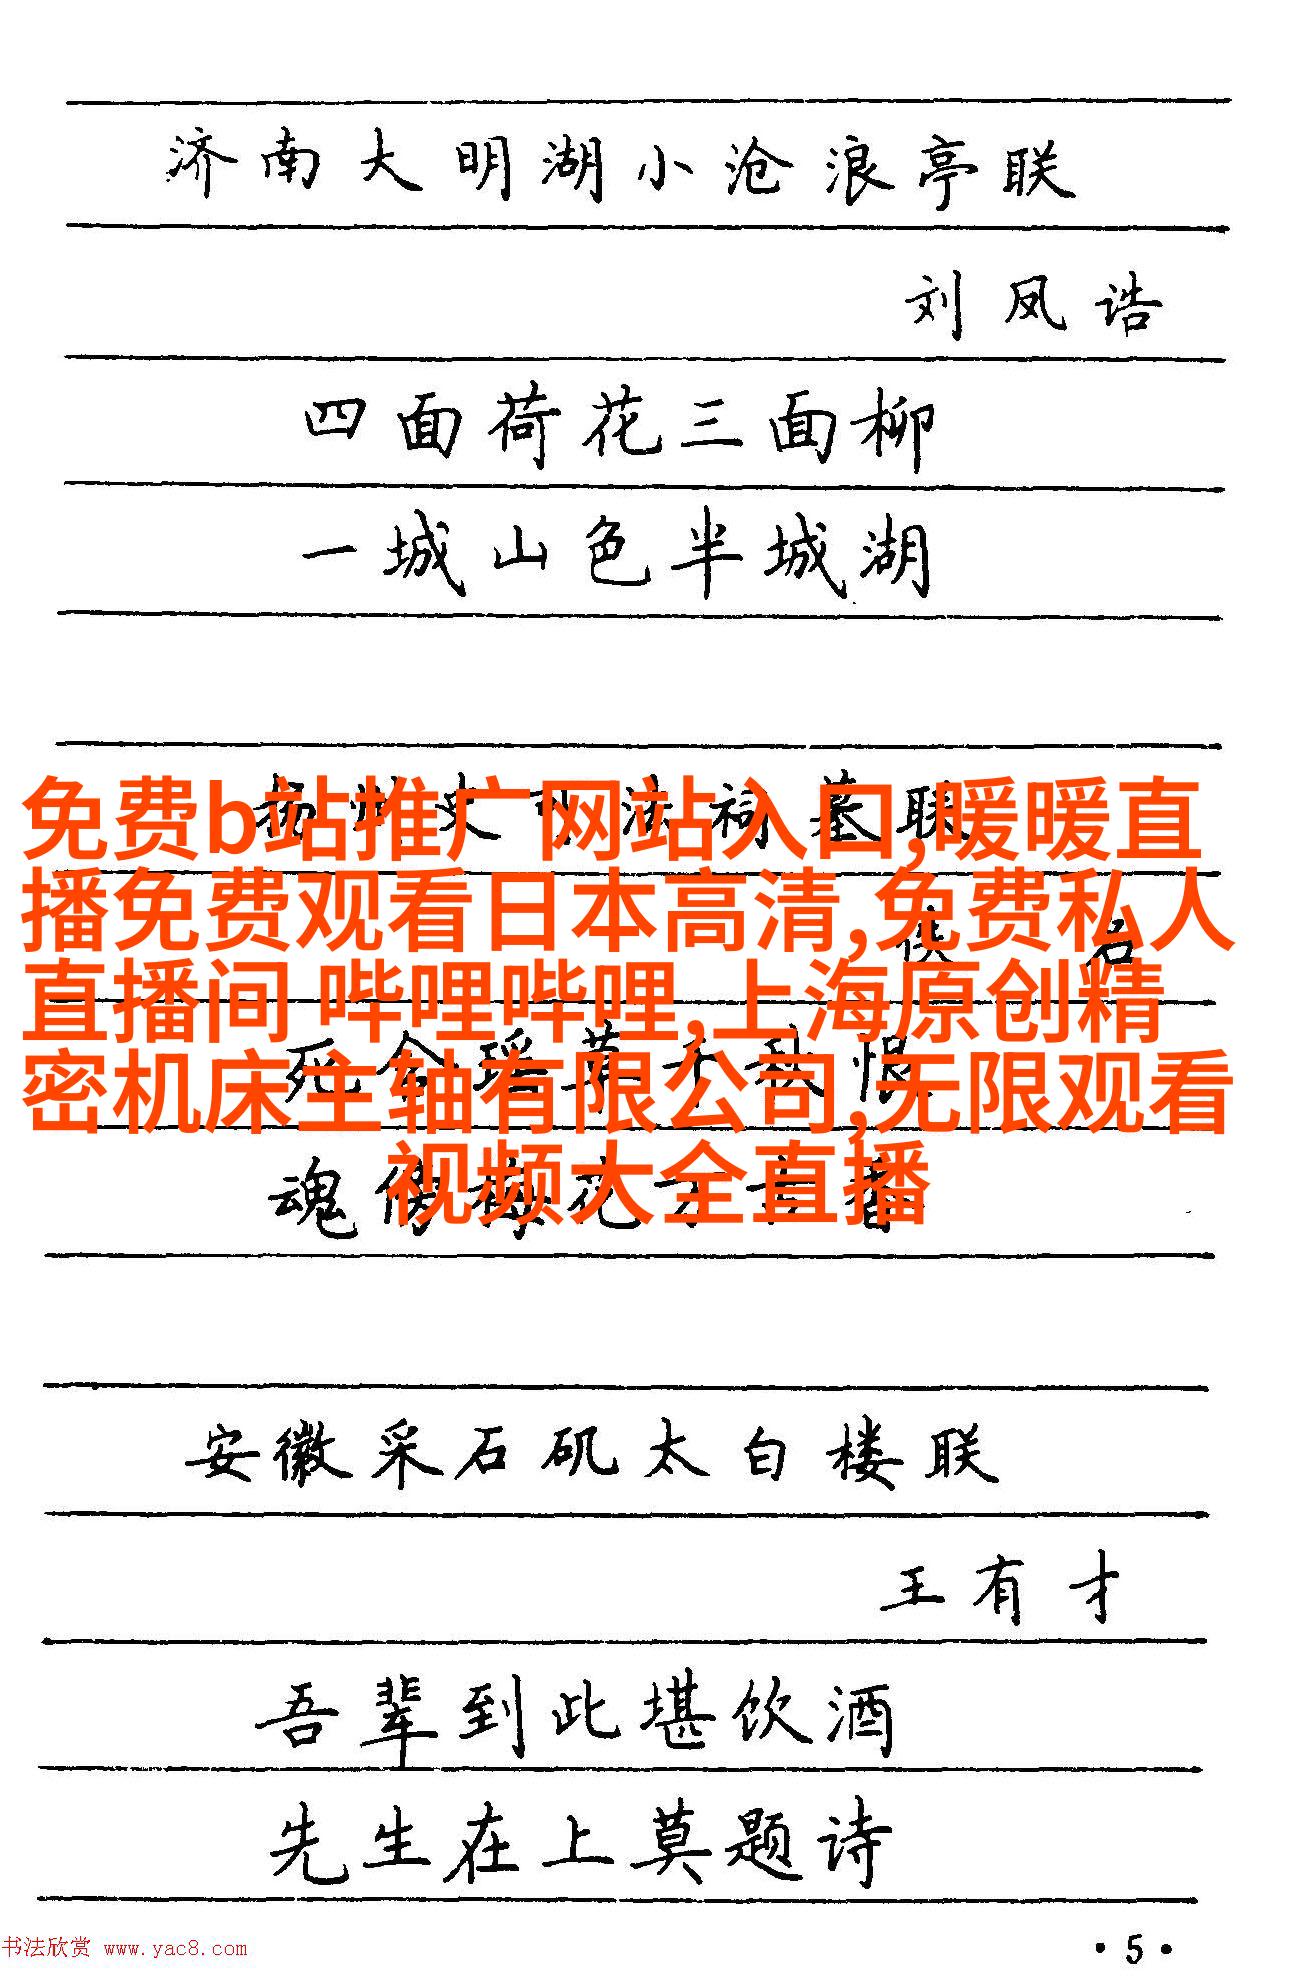 济南大明湖小沧浪亭联
刘凤诰
四面荷花三面柳
一城山色半城湖
扬州史可法祠墓联
免费b站推广网站入口,暖暖直
播免费观看日本高清,免费私人
佚名
直播间 哔哩哔哩,上海原创精
密机床主轴有限公司,无限观看
视频大全直播
安徽采石矶太白楼联
王有才
吾辈到此堪饮酒
先生在上莫题诗
书法欣赏 www.yac8.com
·5·